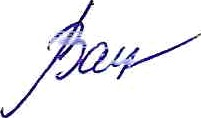 Вац